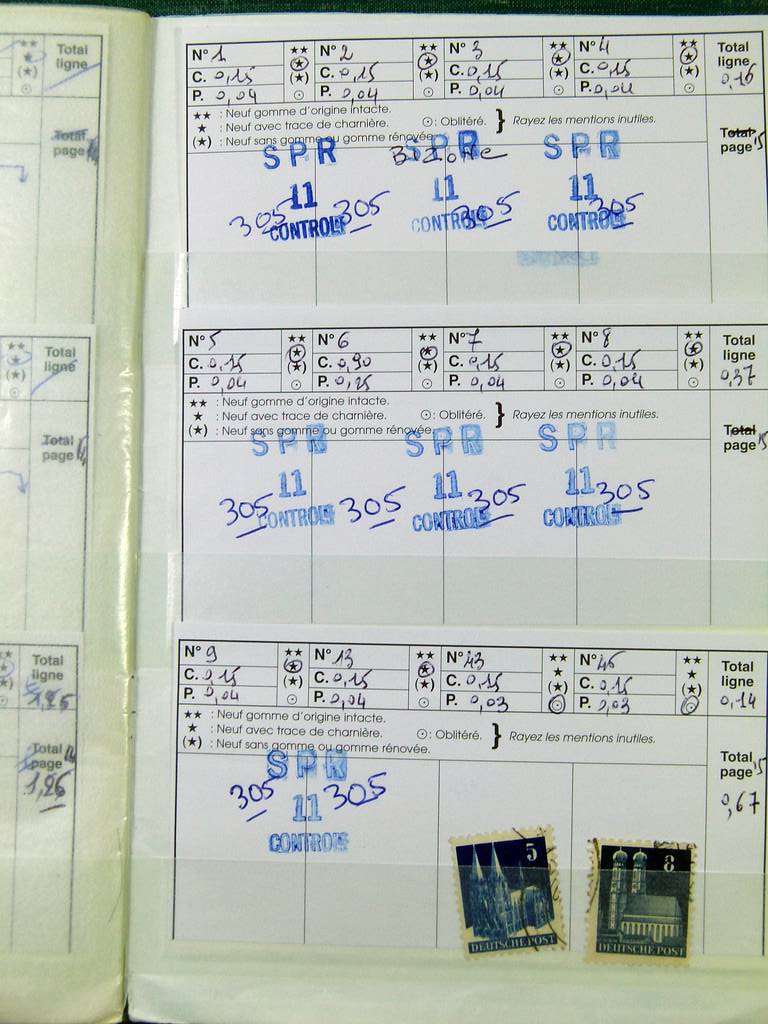 Total ligne
Total page
N° 1 ★★ N° 2 ★★ N° 3 ★★ N° 4 ★★ Total
C. 0,15 ★ C. 0,15 ★ C. 0,15 ★ C. 0,15 ★ ligne
P. 0,04 (★) P. 0,04 (★) P. 0,04 (★) P. 0,04 (★) 0,16
★★ : Neuf gomme d'origine intacte.
★ : Neuf avec trace de charnière. ⊙: Oblitéré. } Rayez les mentions inutiles.
(★) : Neuf sans gomme ou gomme rénovée.
Total page 15
SPR Bizone SPR SPR
11 11 11
305 305 305 305
CONTROLE CONTROLE CONTROLE
Total ligne
Total page
N° 5 ★★ N° 6 ★★ N° 7 ★★ N° 8 ★★ Total
C. 0,15 ★ C. 0,90 ★ C. 0,15 ★ C. 0,15 ★ ligne
P. 0,04 (★) P. 0,25 (★) P. 0,04 (★) P. 0,04 (★) 0,37
★★ : Neuf gomme d'origine intacte.
★ : Neuf avec trace de charnière. ⊙: Oblitéré. } Rayez les mentions inutiles.
(★) : Neuf sans gomme ou gomme rénovée.
Total page 15
SPR SPR SPR
11 11 11
305 305 305 305
CONTROLE CONTROLE CONTROLE
Total ligne
Total page
1,26
N° 9 ★★ N° 13 ★★ N° 43 ★★ N° 46 ★★ Total
C. 0,15 ★ C. 0,15 ★ C. 0,15 ★ C. 0,15 ★ ligne
P. 0,04 (★) P. 0,04 (★) P. 0,03 (★) P. 0,03 (★) 0,14
★★ : Neuf gomme d'origine intacte.
★ : Neuf avec trace de charnière. ⊙: Oblitéré. } Rayez les mentions inutiles.
(★) : Neuf sans gomme ou gomme rénovée.
Total page 15
0,67
SPR
305 11 305
CONTROLE
5
DEUTSCHE POST
8
DEUTSCHE POST